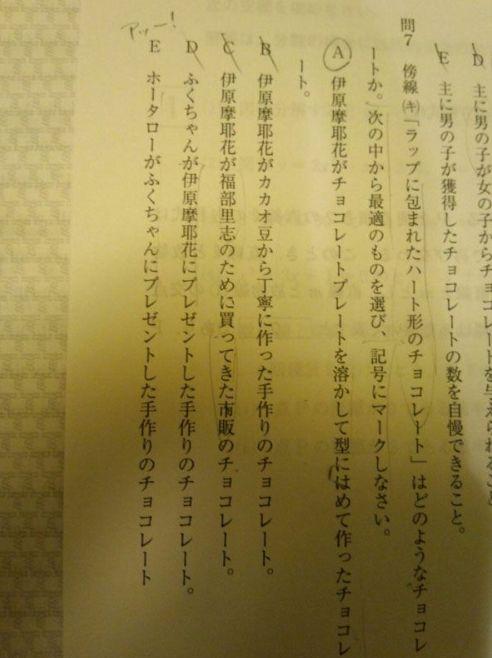 D 主に男の子が女の子からチョコレートを与えられること
E 主に男の子が獲得したチョコレートの数を自慢できること。
問7 傍線㋖「ラップに包まれたハート形のチョコレート」はどのようなチョコレ
ートか。次の中から最適のものを選び、記号にマークしなさい。
A 伊原摩耶花がチョコレートプレートを溶かして型にはめて作ったチョコレ
ート。
B 伊原摩耶花がカカオ豆から丁寧に作った手作りのチョコレート。
C 伊原摩耶花が福部里志のために買ってきた市販のチョコレート。
D ふくちゃんが伊原摩耶花にプレゼントした手作りのチョコレート。
E ホータローがふくちゃんにプレゼントした手作りのチョコレート
アッー!